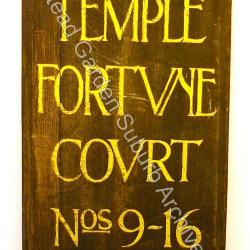 TEMPLE
FORTVNE
COVRT
Nos 9-16
stead Garden Suburb Archive